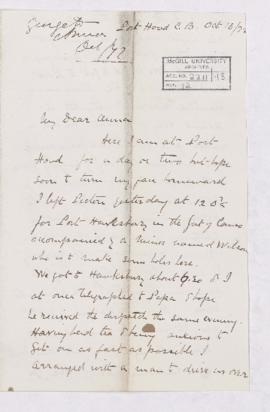 George to
Anna
Oct /72
Port Hood C.B. Oct 18/72
McGILL UNIVERSITY
ARCHIVES
ACC. NO. 2211
REF. 12
My Dear Anna
Here I am at Port
Hood for a day or two but hope
soon to turn my face homeward
I left Pictou yesterday at 12 O'c
for Port Hawksbury in the Gut of Canso
accompanied by a miner named Wilson
who is to make some holes here.
We got to Hawksbury about 6.30 & I
at once telegraphed to Papa I hope
he received the dispatch the same evening.
Having had tea & being anxious to
get on as fast as possible I
arranged with a man to drive us over